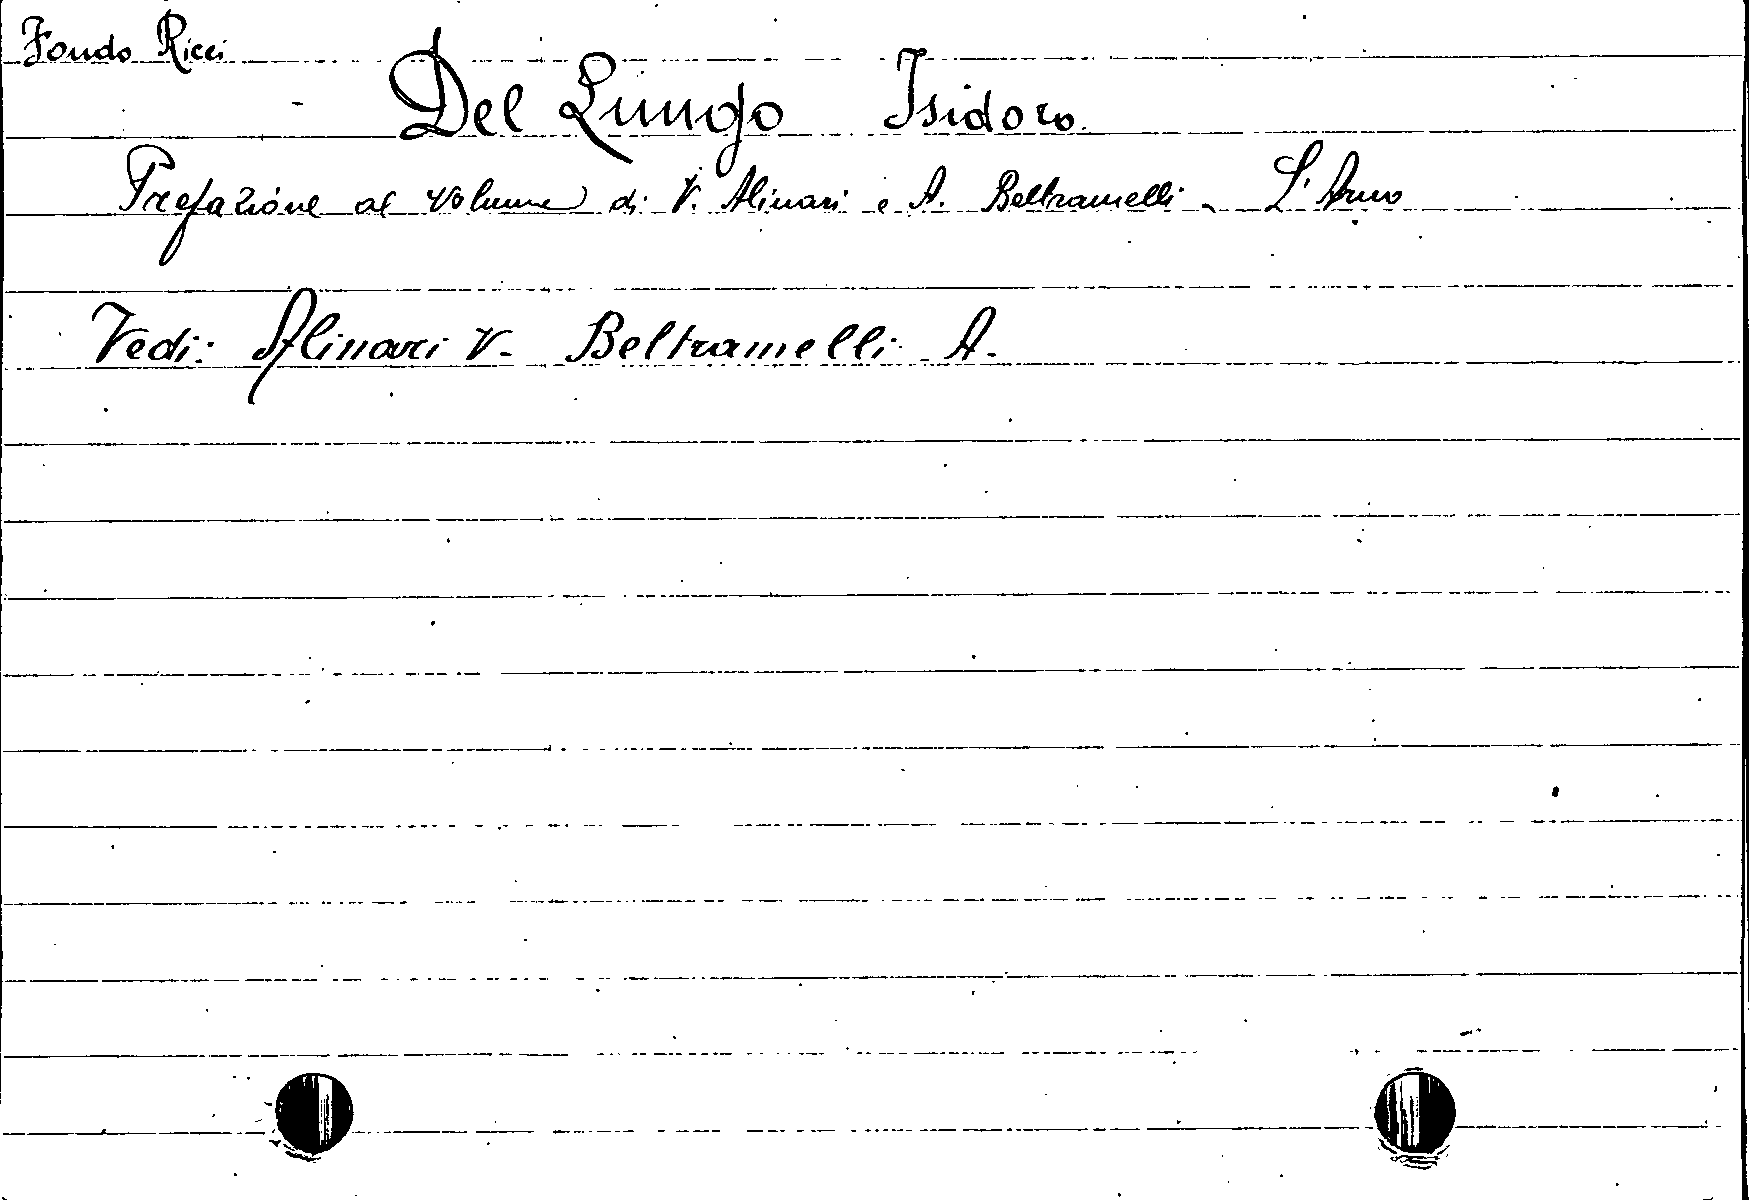 Fondo Ricci
Del Lungo Isidoro
Prefazione al volume di V. Alinari e A. Beltramelli - L'Arno
Vedi: Alinari V. Beltramelli A.